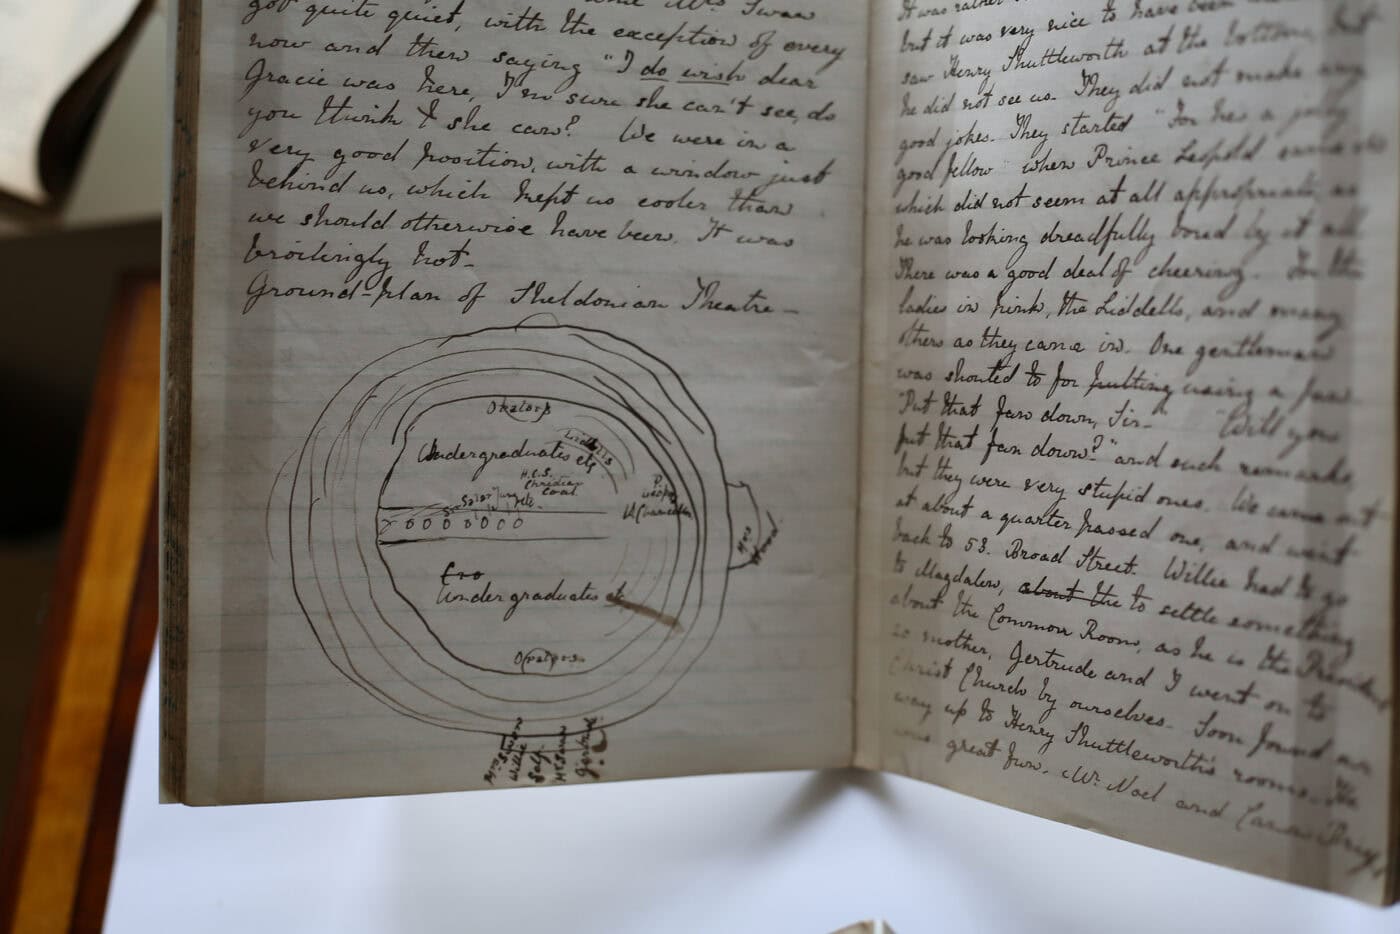 Mrs Swan
got quite quiet, with the exception of every
now and then saying "I do wish dear
Gracie was here, I'm sure she can't see, do
you think I she can? We were in a
very good position, with a window just
behind us, which kept us cooler than
we should otherwise have been. It was
broilingly hot-
Ground-plan of Sheldonian Theatre-
Orators
Undergraduates etc
Liddells
H.C.S.
Christian
Coat.
P.
V. Chancellor
Mrs
Undergraduates etc
Mrs Swan
Willie
Self.
Gertrude
It was rather
but it was very nice to have been
saw Henry Shuttleworth at the bottom, but
he did not see us. They did not make any
good jokes. They started "For he's a jolly
good fellow" when Prince Leopold came
which did not seem at all appropriate, as
he was looking dreadfully bored by it all
There was a good deal of cheering. For the
ladies in pink, the Liddells, and many
others as they came in. One gentleman
was shouted to for putting using a fan
"Put that fan down, Sir-" "Will you
put that fan down?" and such remarks
but they were very stupid ones. We came out
at about a quarter passed one, and went
back to 53. Broad Street. Willie had to go
to Magdalen, about the to settle something
about the Common Room, as he is the President
so mother, Gertrude and I went on to
Christ Church by ourselves. Soon found our
way up to Henry Shuttleworth's rooms. We
great fun. Mr. Noel and